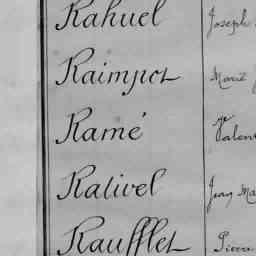 Rahuel Joseph
Raimpot Marie
Ramé Valent
Rativel Jean Ma
Raufflet Pierre